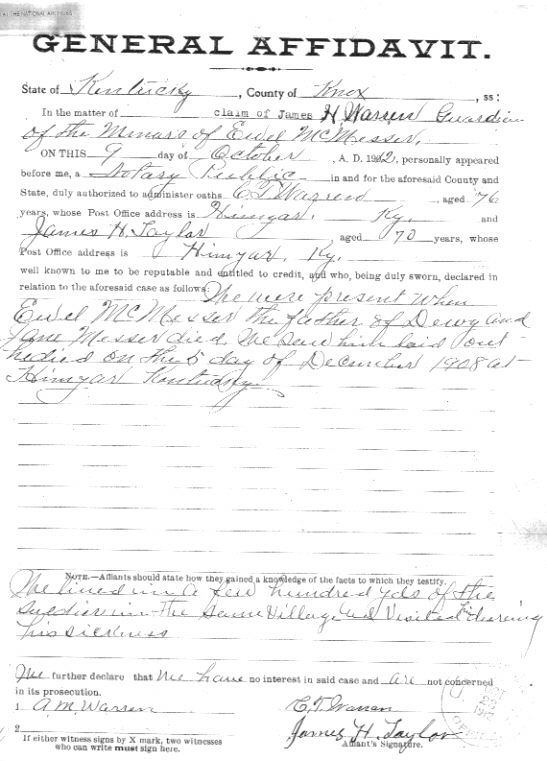 AT THE NATIONAL ARCHIVES
GENERAL AFFIDAVIT.
State of Kentucky, County of Knox, ss:
In the matter of claim of James H Warren Guardian
of the Minars of Ewel McMesser,
ON THIS 9 day of October, A. D. 1912, personally appeared
before me, a Notary Public in and for the aforesaid County and
State, duly authorized to administer oaths C T Warren, aged 76
years, whose Post Office address is Himyar, Ky. and
James H. Taylor aged 70 years, whose
Post Office address is Himyar, Ky.
well known to me to be reputable and entitled to credit, and who, being duly sworn, declared in
relation to the aforesaid case as follows: We were present when
Ewel McMesser the father of Dewy and
Jane Messer died. We saw him laid out
he died on the 5 day of December 1908 at
Himyar Kentucky
NOTE.—Affiants should state how they gained a knowledge of the facts to which they testify.
We lived in a few hundred yds of the
in the same village and visited him during
his sickness
We further declare that we have no interest in said case and are not concerned
in its prosecution.
1 A.M. Warren C.T. Warren
2 James H. Taylor
If either witness signs by X mark, two witnesses
who can write must sign here.
Affiant's Signature.